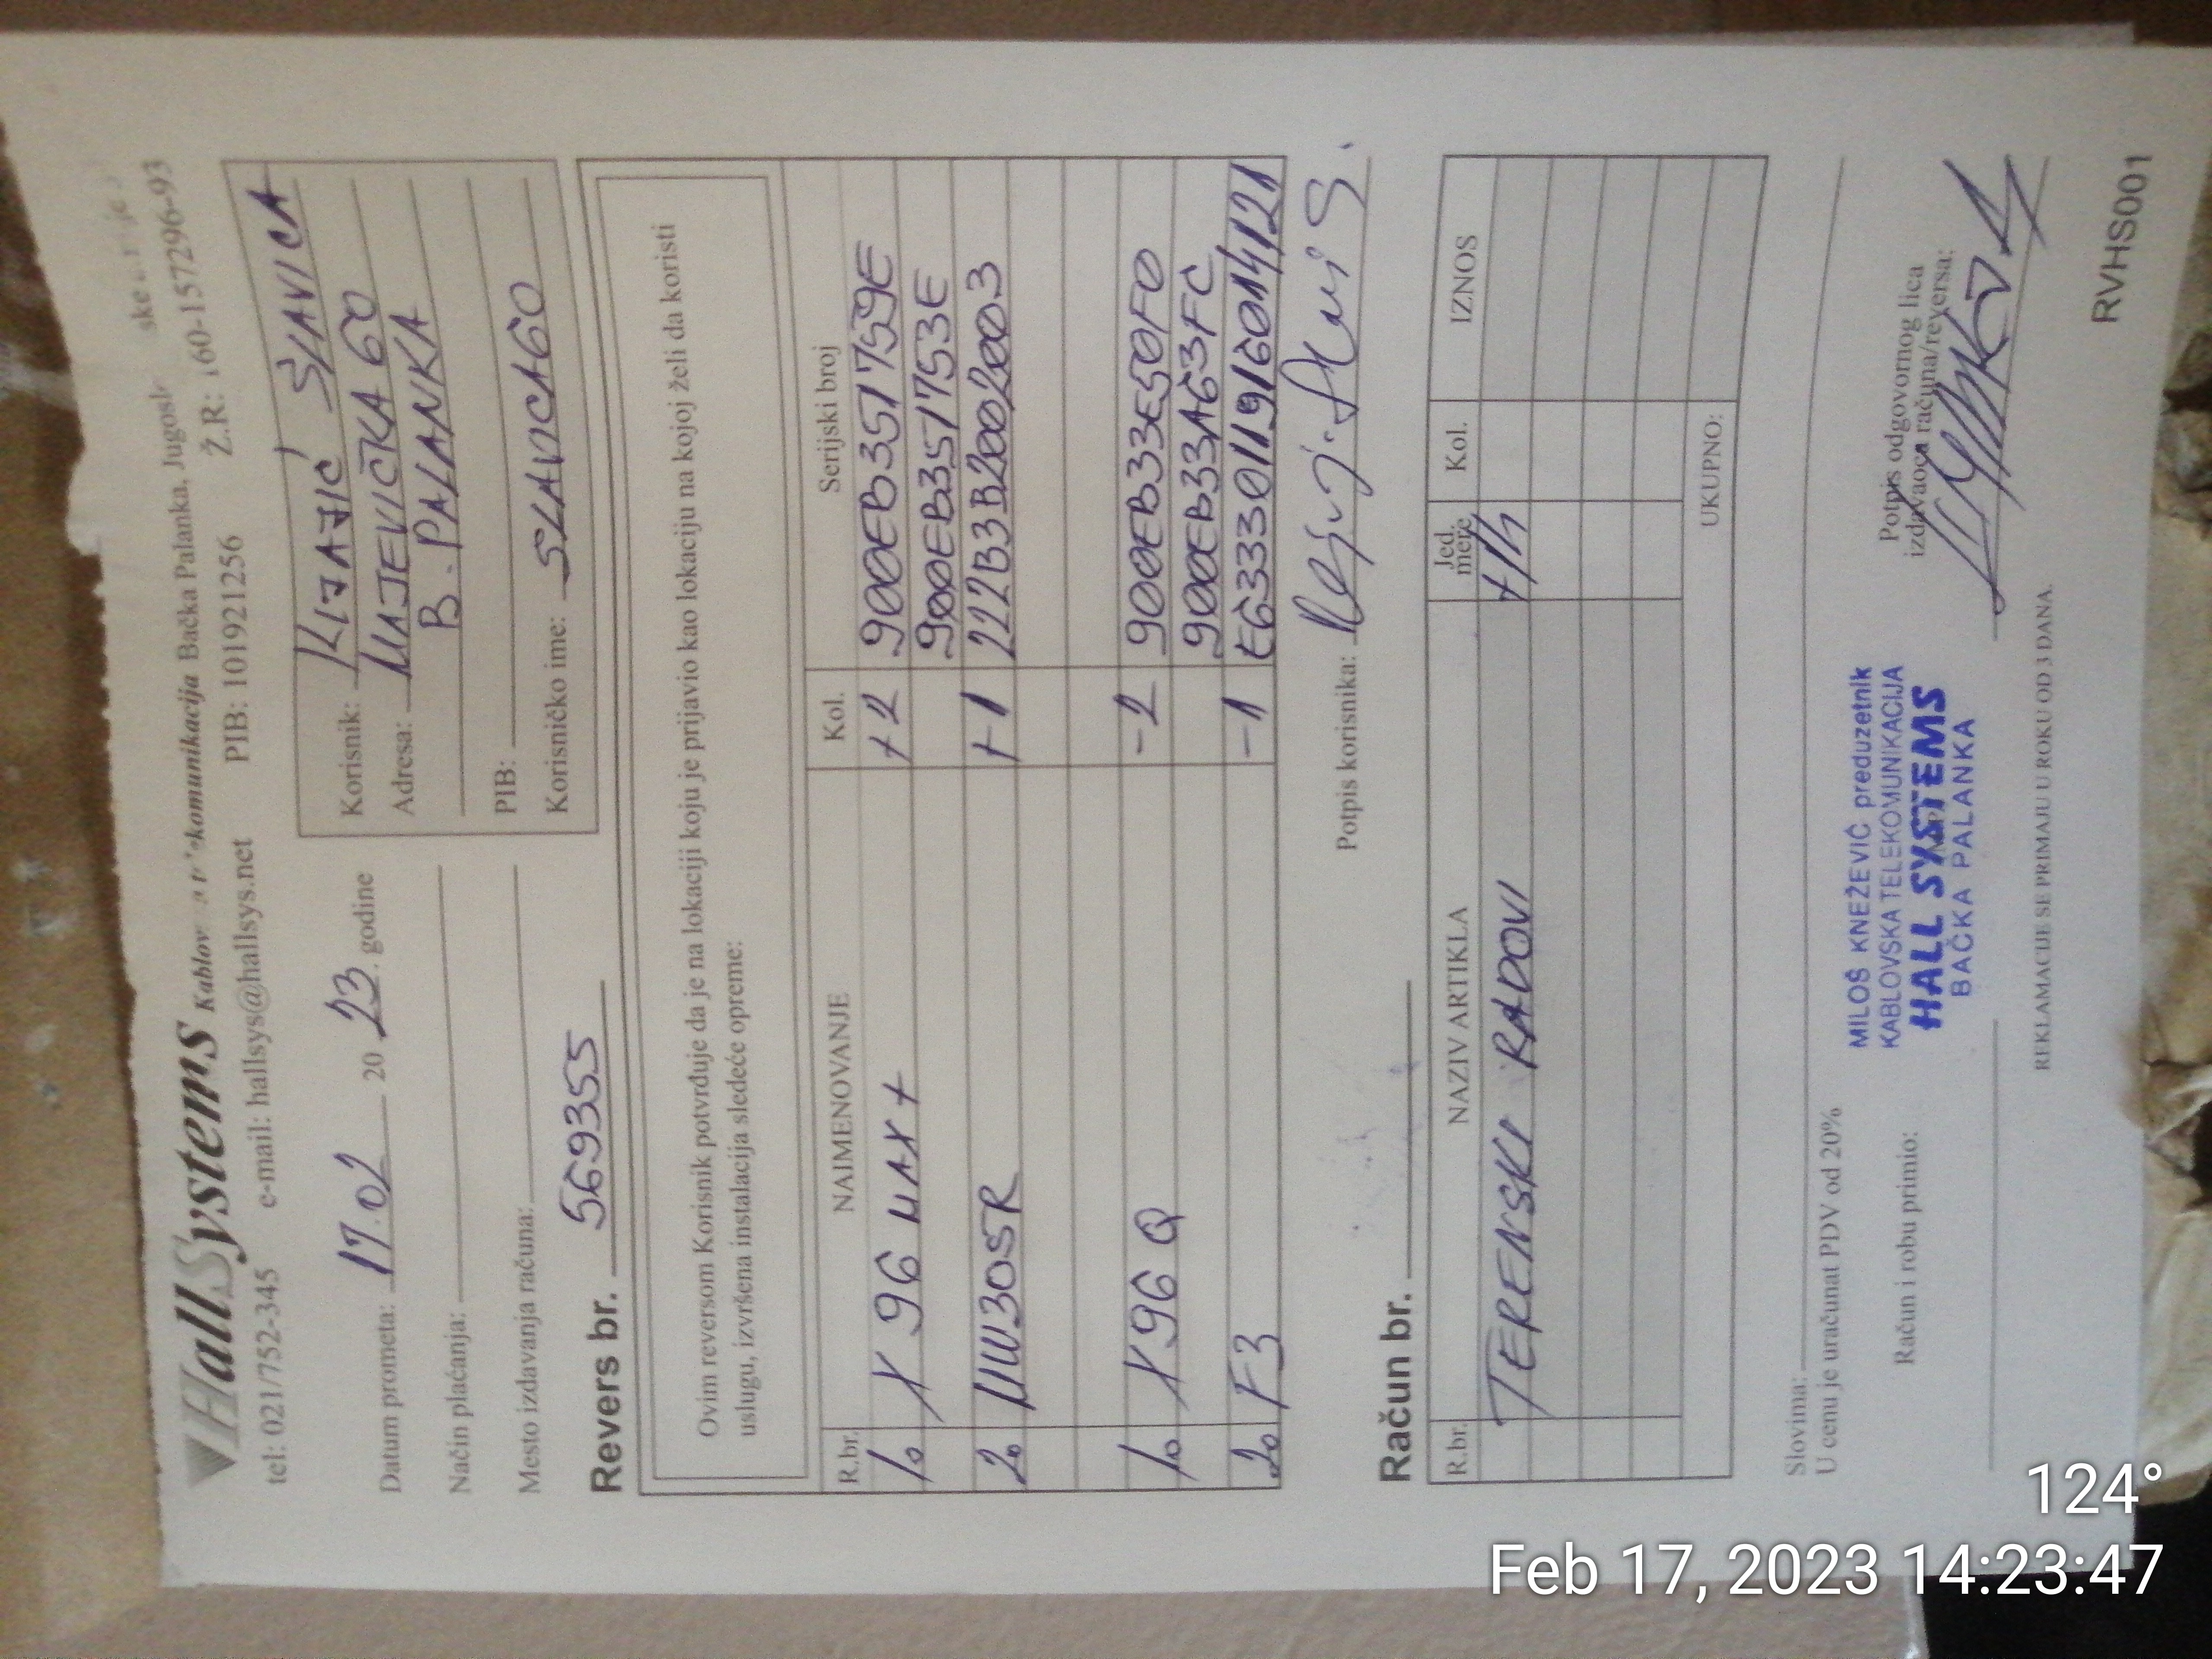 HallSystems
komunikacija Bačka Palanka,
tel: 021/752-345 e-mail: hallsys@hallsys.net PIB: 101921256 Ž.R: 160-1572296-93
Datum prometa: 17.02 20 23. godine
Način plaćanja:
Mesto izdavanja računa:
Korisnik: KLJAJIĆ SLAVICA
Adresa: MAJEVIČKA 60
B. PALANKA
PIB:
Korisničko ime: SLAVICA60
Revers br. 569355
Ovim reversom Korisnik potvrđuje da je na lokaciji koju je prijavio kao lokaciju na kojoj želi da koristi
uslugu, izvršena instalacija sledeće opreme:
R.br. NAIMENOVANJE Kol. Serijski broj
1. X96 MAX+ +2 900EB351759E
900EB351753E
2. MW305R +1 222B3B2002003
1. X96Q -2 900EB33E50F0
900EB33A63FC
2. F3 -1 E6333011916014121
Potpis korisnika:
Račun br.
R.br. NAZIV ARTIKLA Jed. mere Kol. IZNOS
TERENSKI RADOVI +/h
UKUPNO:
Slovima:
U cenu je uračunat PDV od 20%
Račun i robu primio:
MILOŠ KNEŽEVIĆ preduzetnik
KABLOVSKA TELEKOMUNIKACIJA
HALL SYSTEMS
BAČKA PALANKA
Potpis odgovornog lica
izdavaoca računa/reversa:
REKLAMACIJE SE PRIMAJU U ROKU OD 3 DANA.
RVHS001
124°
Feb 17, 2023 14:23:47